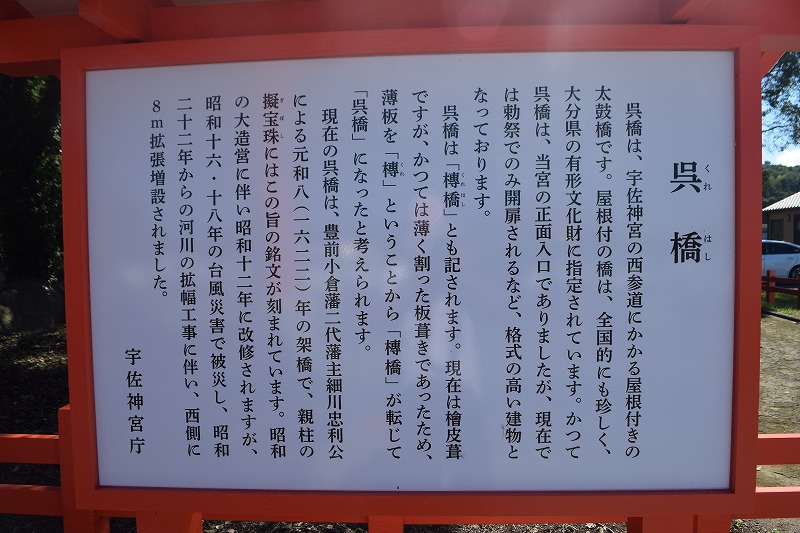 呉橋
くれはし
呉橋は、宇佐神宮の西参道にかかる屋根付きの
太鼓橋です。屋根付の橋は、全国的にも珍しく、
大分県の有形文化財に指定されています。かつて
呉橋は、当宮の正面入口でありましたが、現在で
は勅祭でのみ開扉されるなど、格式の高い建物と
なっております。
呉橋は「榑橋」とも記されます。現在は檜皮葺
くれはし
ですが、かつては薄く割った板葺きであったため、
薄板を「榑」ということから「榑橋」が転じて
くれ
「呉橋」になったと考えられます。
現在の呉橋は、豊前小倉藩二代藩主細川忠利公
による元和八（一六二二）年の架橋で、親柱の
擬宝珠にはこの旨の銘文が刻まれています。昭和
ぎぼし
の大造営に伴い昭和十二年に改修されますが、
昭和十六・十八年の台風災害で被災し、昭和
二十二年からの河川の拡幅工事に伴い、西側に
8m拡張増設されました。
宇佐神宮庁